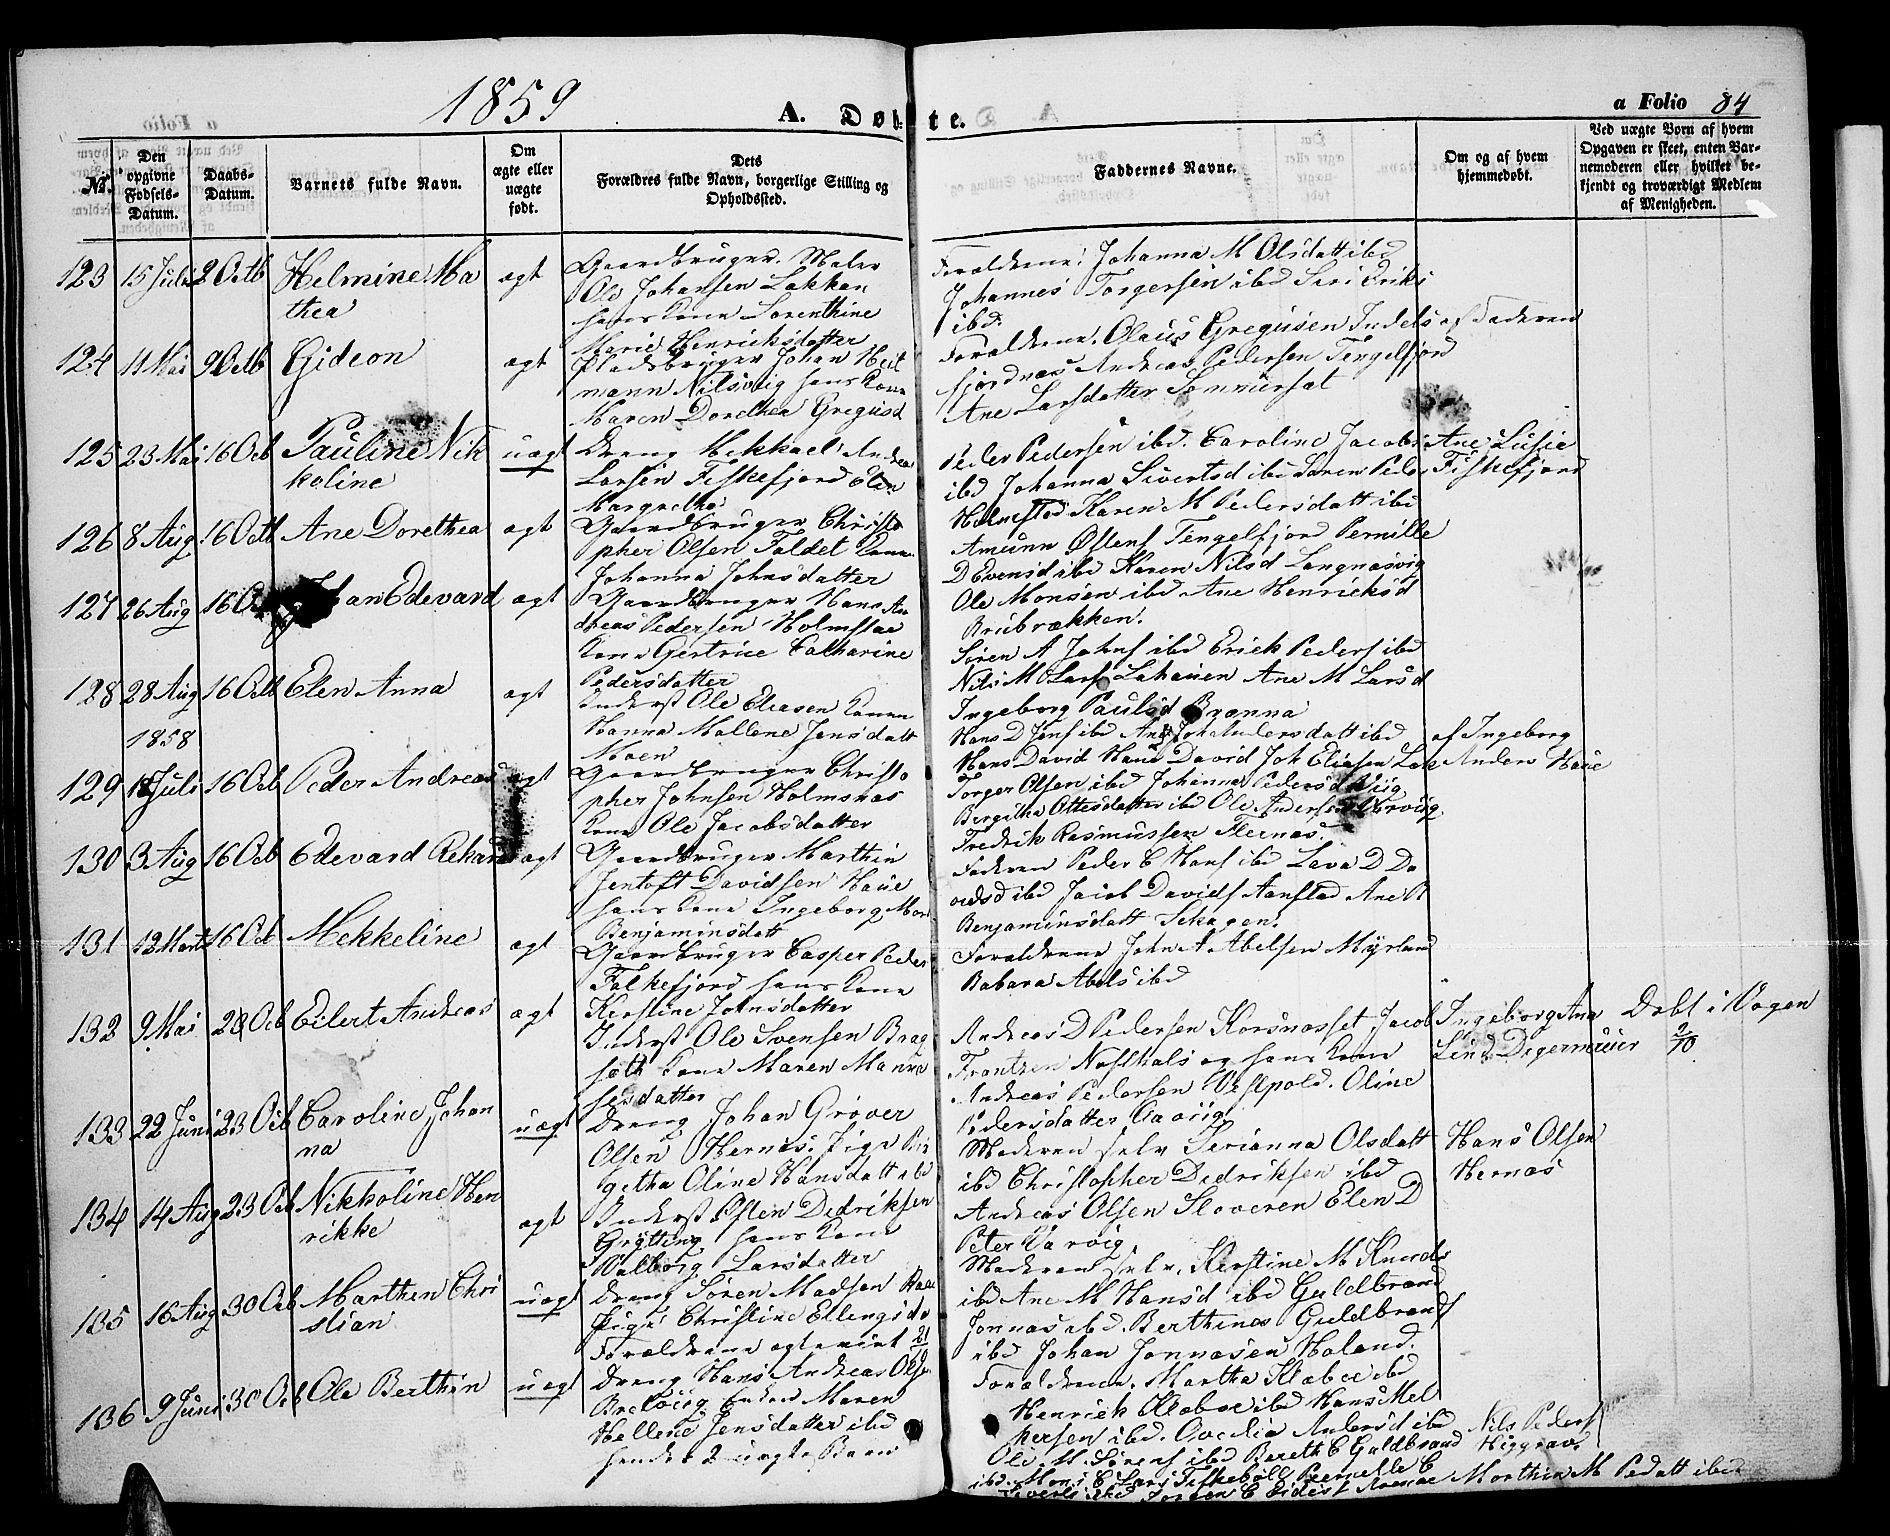 1859
A. Døbte.
a Folio 84
No.
Den opgivne Fødsels-Datum.
Daabs-Datum.
Barnets fulde Navn.
Om ægte eller uægte født.
Dets Forældres fulde Navn, borgerlige Stilling og Opholdssted.
Faddernes Navne.
Om og af hvem hjemmedøbt.
Ved uægte Børn af hvem Opgaven er skeet, enten Barnemoderen eller hvilket bekjendt og troværdigt Medlem af Menigheden.
123 15 Juli 2 Octb Helmine Ma
thea
ægt
Gaardbruger. Maler
Ole Johansen Lakkan
hans Kone Sorenthine
Marie Henrichsdatter
Forældrene, Johanna M Olsdatt ibd
Johannes Torgersen ibd Siri Eriks
ibd.
124 11 Mai 9 Octb Gideon
ægt
Pladsbruger Johan Heit
mann Nilsvig hans Kone
Maren Dorthea Gregusd
Forældrene. Olaus Gregusen Indels
fjordnæs Andreas Pedersen Tengelfjord
Ane Larsdatter Sommerset
af Faderen
125 23 Mai 16 Ocb Pauline Nik
koline
uægt
Dreng Mekkael Andrea
Larsen Fiskefjord Elen
Margretha
Peder Pedersen ibd. Caroline Jacobs
ibd Johanna Sivertsd ibd Søren Peder
Holmstad Karen M Pedersdatt ibd
Ane Lusie
Fiskefjord
126 8 Aug 16 Octb Ane Dorethea
ægt
Gaardbruger Christo
pher Olsen Faldet Kone
Johanna Johnsdatter
Amunn Østens Tengelfjord Pernille
D Evensd ibd Karen Nilsd Langnæsvig
127 26 Aug 16 Oc Johan Edevard
ægt
Gaardbruger Hans An
dreas Pedersen Holmstad
Kone Gertrue Catharine
Pedersdatter
Ole Monsen ibd Ane Henriksd
Brubrækken.
Søren A Johns ibd Erick Peders ibd
128 28 Aug 16 Octb Elen Anna
ægt
Inderst Ole Eliasen Konen
Hanna Mallene Jensdatt
Moen
Nils M Lars Ane M Larsd
Ingeborg Paulsd Brenna
1858
129 Juli 16 Ocb Peder Andreas
ægt
Gaardbruger Christo
pher Johnsen Holmsnæs
Kone Ole Jacobsdatter
Hans D Jens ibd Andersdatt ibd
Hans David Haue David Joh Eliasen
Torger Olsen ibd Johanna Pedersd Viig
af Ingeborg
Anders Haue
130 3 Aug 16 Ocb Edevard Rekard
ægt
Gaardbruger Marthin
Jentoft Davidsen Haue
hans Kone Ingeborg Mar
Benjaminsdatt
Birgitha Ottesdatter ibd Ole Andersen
Fredrik Rasmussen Flernæs.
Faderen Peder C Hans ibd Lava D Da
vidsd ibd Jacob Davids Aanstad Ane A
Benjaminsdatt Skagen.
131 12 Marts 16 Ocb Mekkeline
ægt
Gaardbruger Casper Peder
Falkefjord hans Kone
Kerstine Johnsdatter
Forældrene John A Abelsen Myrland
Babara Abels ibd
132 9 Mai 20 Ocb Eilert Andreas
ægt
Inderst Ole Svensen Brag
Kone Maren Manna
sesdatter
Andreas D Pedersen Korsnæsset Jacob
Frantzen Næsthals og hans Kone
Andreas Pedersen Vestpold. Oline
Pedersdatter
Ingeborg Ana
Lind Digermueler
Døbt i Vogan
2/10
133 22 Juni 23 Ocb Caroline Johan
na
uægt
Dreng Johan Grøver
Olsen Hernæs. Pige Bir
getha Oline Hansdatt ibd
Moderen selv Serianna Olsdatt
ibd Christopher Didriksen ibd
Hans Olsen
Hernæs
134 14 Aug 23 Ocb Nikkoline Hen
rikke
ægt
Inderst Østen Didriksen
Grytting hans Kone
Valborg Larsdatter
Andreas Olsen Sloveren Elen D
Peter Varvig.
135 16 Aug 30 Ocb Marthin Chri
stian
uægt
Dreng Søren Madsen
Pige Christine Ellengsd
Forældrene ægteviet 21/10
Moderen selv, Kerstine M Knuds
ibd Ane M Hansd ibd Guldbrand
Jonnas ibd. Berthines Guldbrands
ibd Johan Jonnasen Haland.
136 9 Juni 30 Ocb Ole Berthin
uægt
Dreng Hans Andreas Olsen
Enken Maren
Hellene Jensdatter ibd
hendes 2 uægte Barn
Forældrene. Martha Klaboe ibd
Henrick Klaboe ibd Hans Mel
kersen ibd. Andersd ibd
Ole M. Sørens ibd Bereth C Guldbrand
ibd. Lars Fiskebøll Pernelle C
Morthin M Pedatt ibd
Nils Peders
Higgrav.